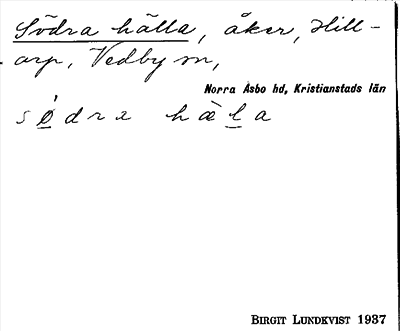 Södra hälla, åker, Hill-
arp, Vedby sn,
Norra Åsbo hd, Kristianstads län
sǿ̠dra hæl̠a
BIRGIT LUNDKVIST 1937